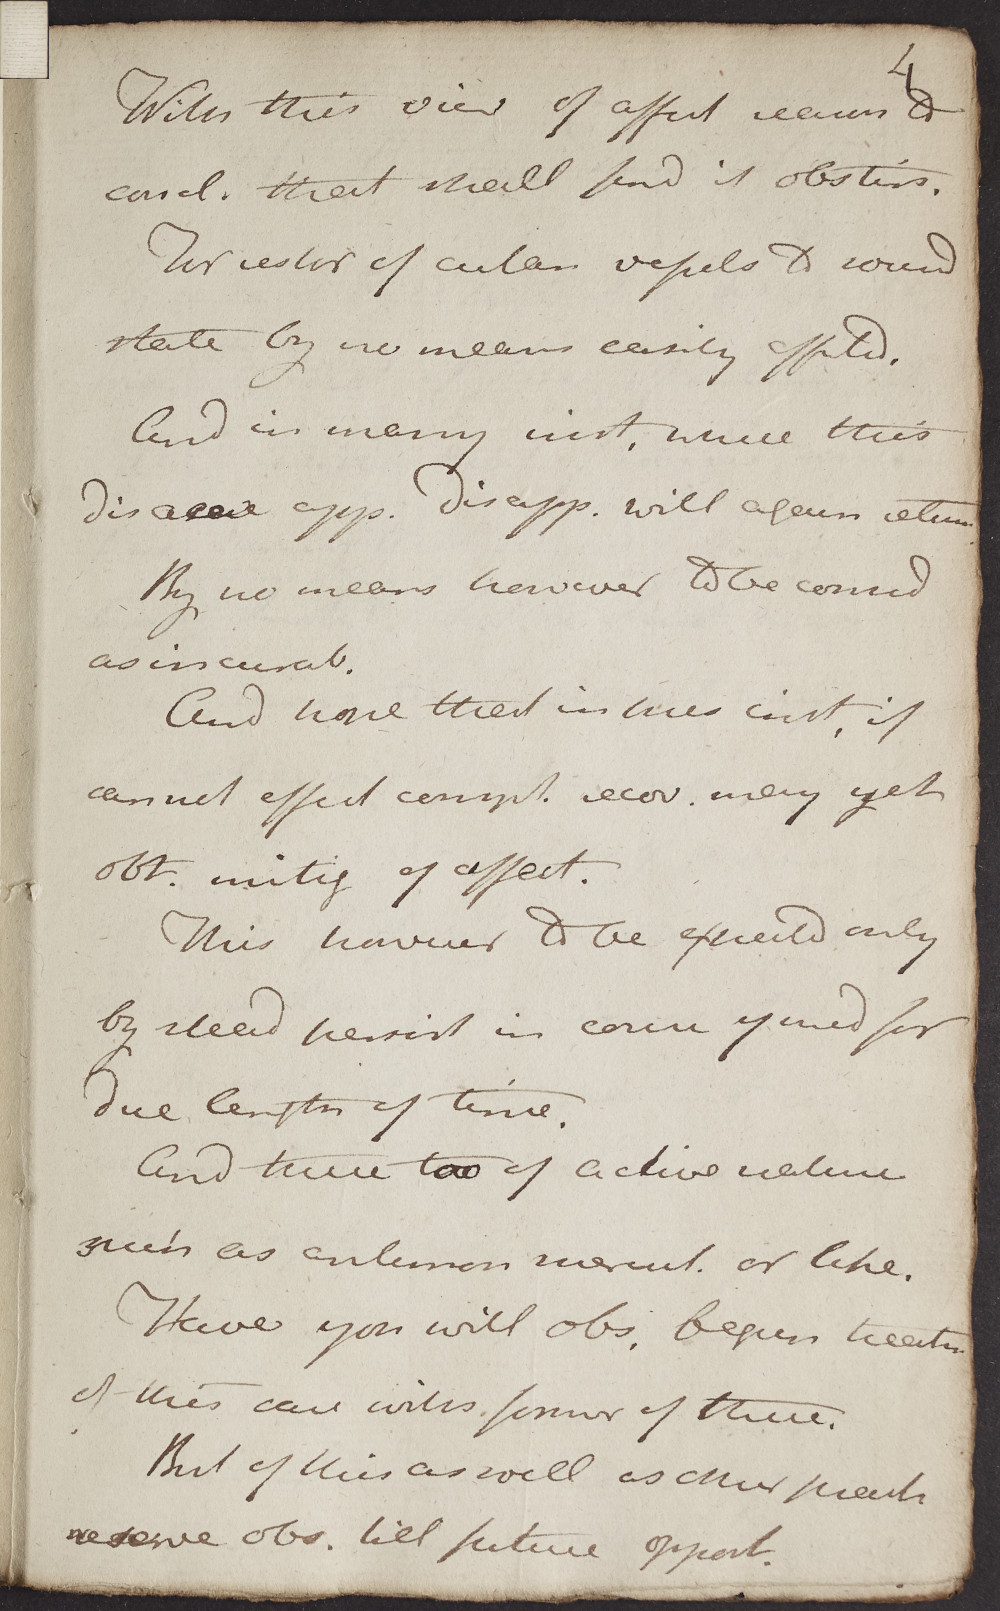 4
With this view of affect reason to
concl. that shall find it obstin.
For restor of cutan vessels to sound
state by no means easily effectd.
And in many inst, where this
disease app. disapp. will again return
By no means however to be consid
as incurab.
And hope that in this inst, if
cannot effect compt. recov. may yet
obt. mitig of affect.
This however to be expectd only
by stead persist in course of med for
due length of time.
And these too of active nature
such as antimon mercut. or like.
Have you will obs, begun treatm
of this case with former of these.
But of this as well as other pract
reserve obs. till future opport.